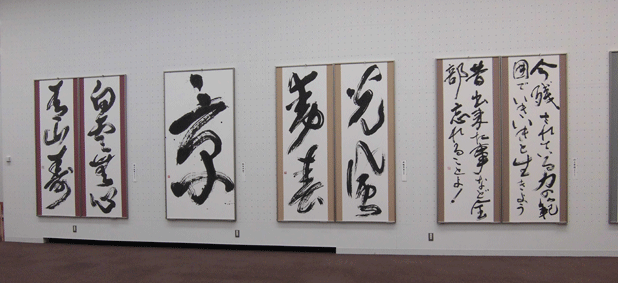 白雲無心
青山寿
光風
動春
今残されている力の範
囲でいきいきと生きよう
昔出来た事など全
部忘れることよ!